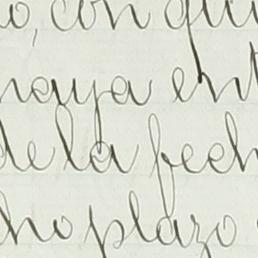 o, con qu
haya ent
de la fech
ho plazo